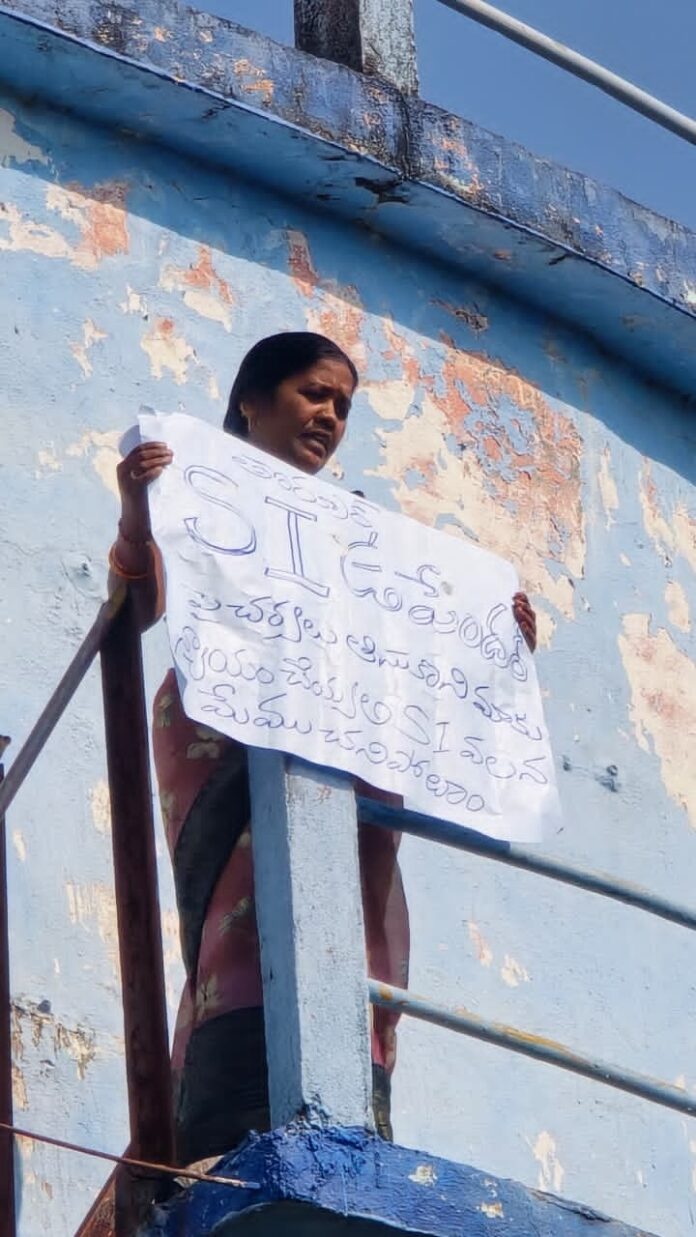 SI ఉపేందర్
పై చర్యలు తీసుకొని మాకు
న్యాయం చేయ్యాలి SI వలన
మేము చనిపోతాం